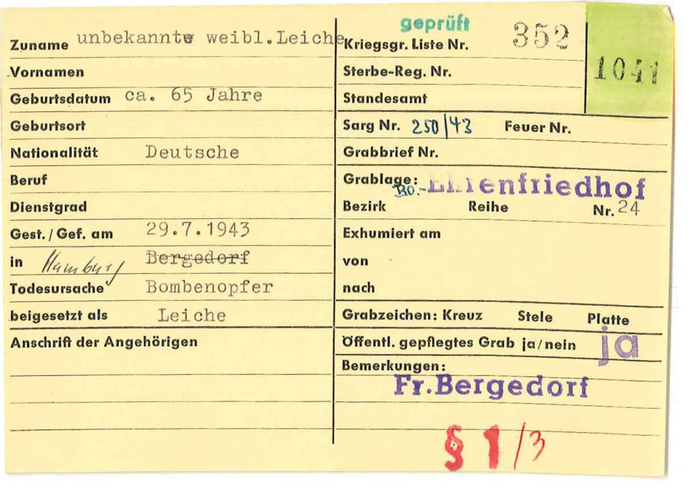 geprüft
Zuname unbekannte weibl.Leiche
Kriegsgr. Liste Nr. 352
1041
Vornamen
Sterbe-Reg. Nr.
Geburtsdatum ca. 65 Jahre
Standesamt
Geburtsort
Sarg Nr. 250/43 Feuer Nr.
Nationalität Deutsche
Grabbrief Nr.
Beruf
Grablage: Bo.- Ehrenfriedhof
Dienstgrad
Bezirk Reihe Nr. 24
Gest./Gef. am 29.7.1943
Exhumiert am
in Hamburg Bergedorf
von
Todesursache Bombenopfer
nach
beigesetzt als Leiche
Grabzeichen: Kreuz Stele Platte
Anschrift der Angehörigen
Öffentl. gepflegtes Grab ja/nein ja
Bemerkungen:
Fr.Bergedorf
§ 1/3